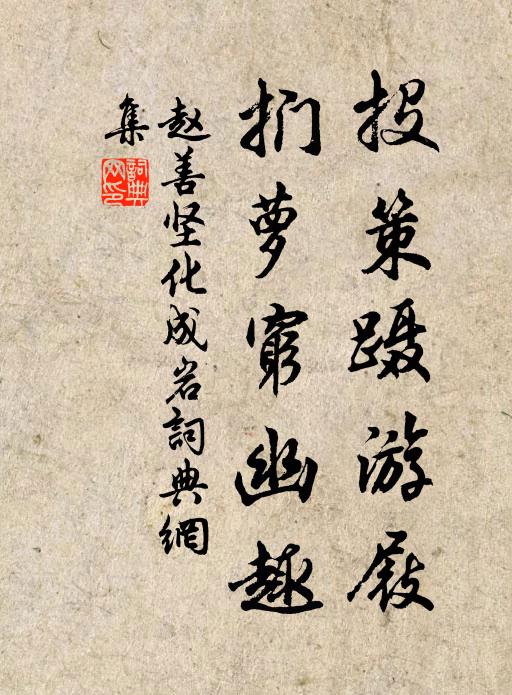 投策蹑游屐
扪萝穷幽趣
赵善坚化成岩詞典網
集
詞典网印